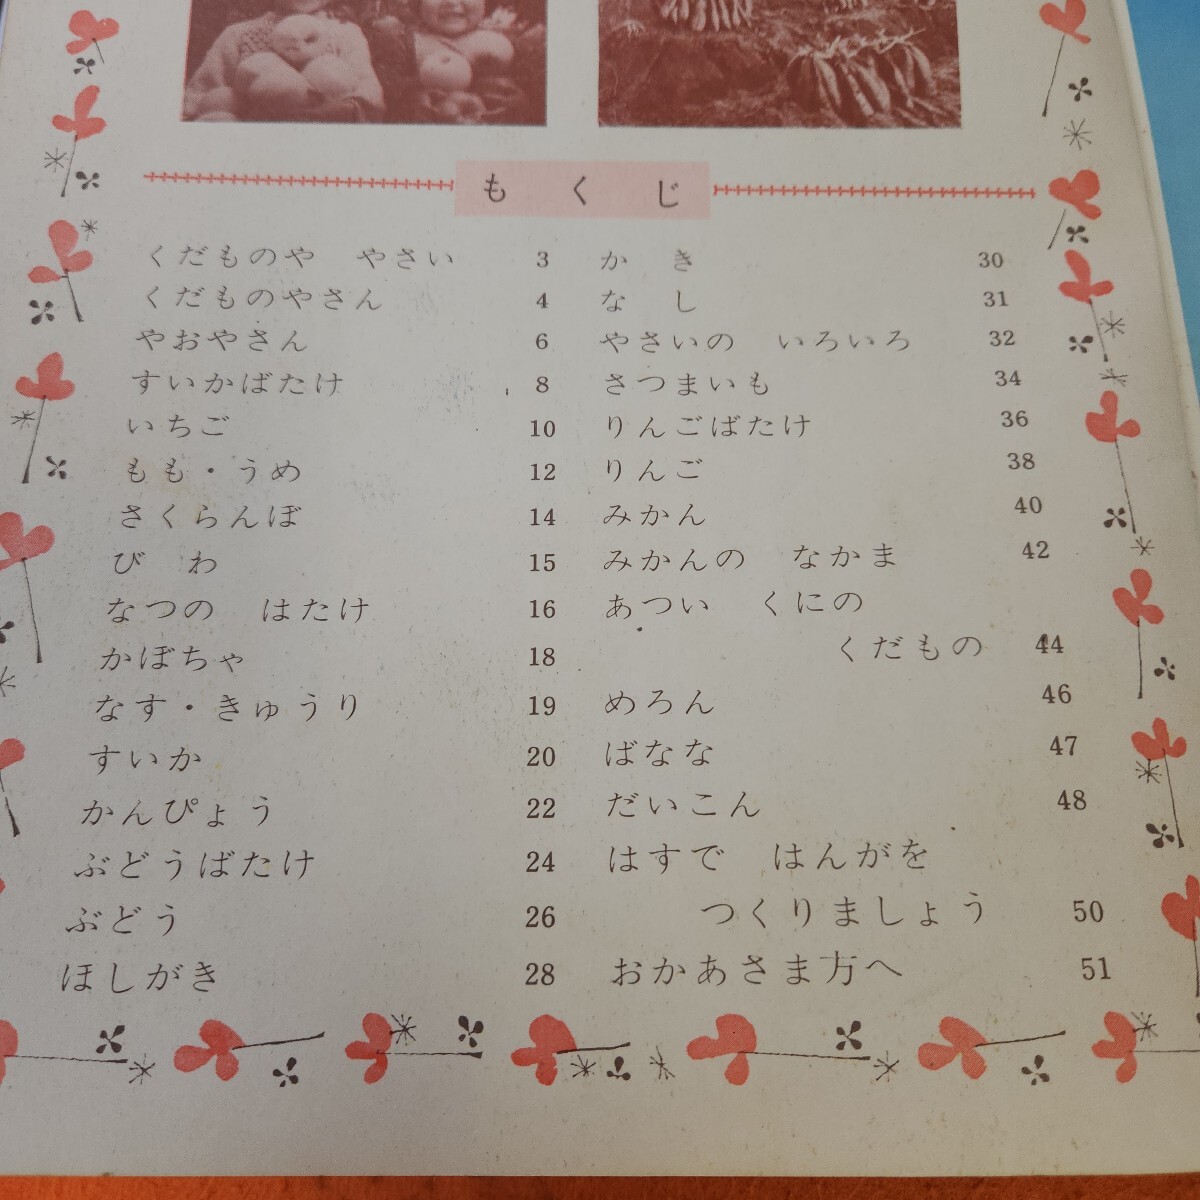 もくじ
くだものや　やさい 3
くだものやさん 4
やおやさん 6
すいかばたけ 8
いちご 10
もも・うめ 12
さくらんぼ 14
び　わ 15
なつの　はたけ 16
かぼちゃ 18
なす・きゅうり 19
すいか 20
かんぴょう 22
ぶどうばたけ 24
ぶどう 26
ほしがき 28
か　き 30
な　し 31
やさいの　いろいろ 32
さつまいも 34
りんごばたけ 36
りんご 38
みかん 40
みかんの　なかま 42
あつい　くにの
くだもの 44
めろん 46
ばなな 47
だいこん 48
はすで　はんがを
つくりましょう 50
おかあさま方へ 51